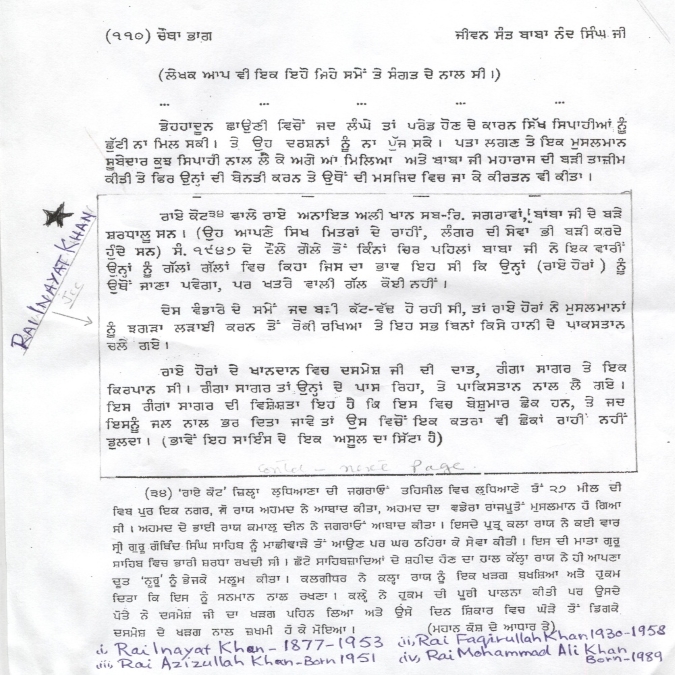 (੧੧੦) ਚੌਥਾ ਭਾਗ	ਜੀਵਨ ਸੰਤ ਬਾਬਾ ਨੰਦ ਸਿੰਘ ਜੀ
(ਲੇਖਕ ਆਪ ਵੀ ਇਕ ਇਹੋ ਜਿਹੇ ਸਮੇਂ ਤੇ ਸੰਗਤ ਦੇ ਨਾਲ ਸੀ।)
... ... ... ... ...
ਡੇਹਹਾਦੂਨ ਛਾਉਣੀ ਵਿਚੋਂ ਜਦ ਲੰਘੇ ਤਾਂ ਪਰੇਡ ਹੋਣ ਦੇ ਕਾਰਨ ਸਿੱਖ ਸਿਪਾਹੀਆਂ ਨੂੰ
ਛੁੱਟੀ ਨਾ ਮਿਲ ਸਕੀ। ਤੇ ਉਹ ਦਰਸ਼ਨਾਂ ਨੂੰ ਨਾ ਪੁੱਜ ਸਕੇ। ਪਤਾ ਲਗਣ ਤੇ ਇਕ ਮੁਸਲਮਾਨ
ਸੂਬੇਦਾਰ ਕੁਛ ਸਿਪਾਹੀ ਨਾਲ ਲੈ ਕੇ ਅਗੇ ਆ ਮਿਲਿਆ ਅਤੇ ਬਾਬਾ ਜੀ ਮਹਾਰਾਜ ਦੀ ਬੜੀ ਤਾਜ਼ੀਮ
ਕੀਤੀ ਤੇ ਫਿਰ ਉਨ੍ਹਾਂ ਦੀ ਬੇਨਤੀ ਕਰਨ ਤੇ ਉਥੋਂ ਦੀ ਮਸਜਿਦ ਵਿਚ ਜਾ ਕੇ ਕੀਰਤਨ ਵੀ ਕੀਤਾ।
ਰਾਏ ਕੋਟ੩੪ ਵਾਲੇ ਰਾਏ ਅਨਾਇਤ ਅਲੀ ਖਾਨ ਸਬ-ਰਿ. ਜਗਰਾਵਾਂ, ਬਾਬਾ ਜੀ ਦੇ ਬੜੇ
ਸ਼ਰਧਾਲੂ ਸਨ। (ਉਹ ਆਪਣੇ ਸਿਖ ਮਿਤਰਾਂ ਦੇ ਰਾਹੀਂ, ਲੰਗਰ ਦੀ ਸੇਵਾ ਭੀ ਬੜੀ ਕਰਦੇ
ਹੁੰਦੇ ਸਨ) ਸੰ. ੧੯੪੭ ਦੇ ਰੌਲੇ ਗੌਲੇ ਤੋਂ ਕਿੰਨਾਂ ਚਿਰ ਪਹਿਲਾਂ ਬਾਬਾ ਜੀ ਨੇ ਇਕ ਵਾਰੀਂ
ਉਨ੍ਹਾਂ ਨੂੰ ਗੱਲਾਂ ਗੱਲਾਂ ਵਿਚ ਕਿਹਾ ਜਿਸ ਦਾ ਭਾਵ ਇਹ ਸੀ ਕਿ ਉਨ੍ਹਾਂ (ਰਾਏ ਹੋਰਾਂ) ਨੂੰ
ਉਥੋਂ ਜਾਣਾ ਪਵੇਗਾ, ਪਰ ਖਤਰੇ ਵਾਲੀ ਗੱਲ ਕੋਈ ਨਹੀਂ।
ਦੇਸ ਵੰਡਾਰੇ ਦੇ ਸਮੇਂ ਜਦ ਬੜੀ ਕੱਟ-ਵੱਢ ਹੋ ਰਹੀ ਸੀ, ਤਾਂ ਰਾਏ ਹੋਰਾਂ ਨੇ ਮੁਸਲਮਾਨਾਂ
ਨੂੰ ਝਗੜਾ ਲੜਾਈ ਕਰਨ ਤੋਂ ਰੋਕੀ ਰਖਿਆ ਤੇ ਇਹ ਸਭ ਬਿਨਾਂ ਕਿਸੇ ਹਾਨੀ ਦੇ ਪਾਕਸਤਾਨ
ਚਲੇ ਗਏ।
ਰਾਏ ਹੋਰਾਂ ਦੇ ਖਾਨਦਾਨ ਵਿਚ ਦਸਮੇਸ਼ ਜੀ ਦੀ ਦਾਤ, ਗੰਗਾ ਸਾਗਰ ਤੇ ਇਕ
ਕਿਰਪਾਨ ਸੀ। ਗੰਗਾ ਸਾਗਰ ਤਾਂ ਉਨ੍ਹਾਂ ਦੇ ਪਾਸ ਰਿਹਾ, ਤੇ ਪਾਕਿਸਤਾਨ ਨਾਲ ਲੈ ਗਏ।
ਇਸ ਗੰਗਾ ਸਾਗਰ ਦੀ ਵਿਸ਼ੇਸ਼ਤਾ ਇਹ ਹੈ ਕਿ ਇਸ ਵਿਚ ਬੇਸ਼ੁਮਾਰ ਛੇਕ ਹਨ, ਤੇ ਜਦ
ਇਸਨੂੰ ਜਲ ਨਾਲ ਭਰ ਦਿਤਾ ਜਾਵੇ ਤਾਂ ਉਸ ਵਿਚੋਂ ਇਕ ਕਤਰਾ ਵੀ ਛੇਕਾਂ ਰਾਹੀਂ ਨਹੀਂ
ਡੁਲਦਾ। (ਭਾਵੇਂ ਇਹ ਸਾਇੰਸ ਦੇ ਇਕ ਅਸੂਲ ਦਾ ਸਿੱਟਾ ਹੈ)
Contd - next Page
RAI INAYAT KHAN
See
(੩੪) 'ਰਾਏ ਕੋਟ' ਜ਼ਿਲ੍ਹਾ ਲੁਧਿਆਣਾ ਦੀ ਜਗਰਾਓਂ ਤਹਿਸੀਲ ਵਿਚ ਲੁਧਿਆਨੇ ਤੋਂ ੨੭ ਮੀਲ ਦੀ
ਵਿਥ ਪੁਰ ਇਕ ਨਗਰ, ਜੋ ਰਾਯ ਅਹਮਦ ਨੇ ਆਬਾਦ ਕੀਤਾ, ਅਹਮਦ ਦਾ ਵਡੇਰਾ ਰਾਜਪੂਤੋਂ ਮੁਸਲਮਾਨ ਹੋ ਗਿਆ
ਸੀ। ਅਹਮਦ ਦੇ ਭਾਈ ਰਾਯ ਕਮਾਲੁ ਦੀਨ ਨੇ ਜਗਰਾਓਂ ਆਬਾਦ ਕੀਤਾ। ਇਸਦੇ ਪੁਤ੍ਰ ਕਲਾ ਰਾਯ ਨੇ ਕਈ ਵਾਰ
ਸ੍ਰੀ ਗੁਰੂ ਗੋਬਿੰਦ ਸਿੰਘ ਸਾਹਿਬ ਨੂੰ ਮਾਛੀਵਾੜੇ ਤੋਂ ਆਉਣ ਪਰ ਘਰ ਠਹਿਰਾ ਕੇ ਸੇਵਾ ਕੀਤੀ। ਇਸ ਦੀ ਮਾਤਾ ਗੁਰੂ
ਸਾਹਿਬ ਵਿਚ ਭਾਰੀ ਸ਼ਰਧਾ ਰਖਦੀ ਸੀ। ਛੋਟੇ ਸਾਹਿਬਜ਼ਾਦਿਆਂ ਦੇ ਸ਼ਹੀਦ ਹੋਣ ਦਾ ਹਾਲ ਕੱਲ੍ਹਾ ਰਾਯ ਨੇ ਹੀ ਆਪਣਾ
ਦੂਤ 'ਨੂਰੂ' ਨੂੰ ਭੇਜਕੇ ਮਲੂਮ ਕੀਤਾ। ਕਲਗੀਧਰ ਨੇ ਕਲ੍ਹਾ ਰਾਯ ਨੂੰ ਇਕ ਖੜਗ ਬਖਸ਼ਿਆ ਅਤੇ ਹੁਕਮ
ਦਿਤਾ ਕਿ ਇਸ ਨੂੰ ਸਨਮਾਨ ਨਾਲ ਰਖਣਾ। ਕਲ੍ਹੇ ਨੇ ਹੁਕਮ ਦੀ ਪੂਰੀ ਪਾਲਨਾ ਕੀਤੀ ਪਰ ਉਸਦੇ
ਪੋਤੇ ਨੇ ਦਸਮੇਸ਼ ਜੀ ਦਾ ਖੜਗ ਪਹਿਨ ਲਿਆ ਅਤੇ ਉਸੇ ਦਿਨ ਸ਼ਿਕਾਰ ਵਿਚ ਘੋੜੇ ਤੋਂ ਡਿਗਕੇ
ਦਸਮੇਸ਼ ਦੇ ਖੜਗ ਨਾਲ ਜ਼ਖਮੀ ਹੋ ਕੇ ਮੋਇਆ। (ਮਹਾਨ ਕੋਸ਼ ਦੇ ਆਧਾਰ ਤੇ)
i, Rai Inayat Khan - 1877-1953 ii, Rai Faqirullah Khan 1930-1958
iii, Rai Azizullah Khan-Born 1951 iv, Rai Mohammad Ali Khan
Born-1989